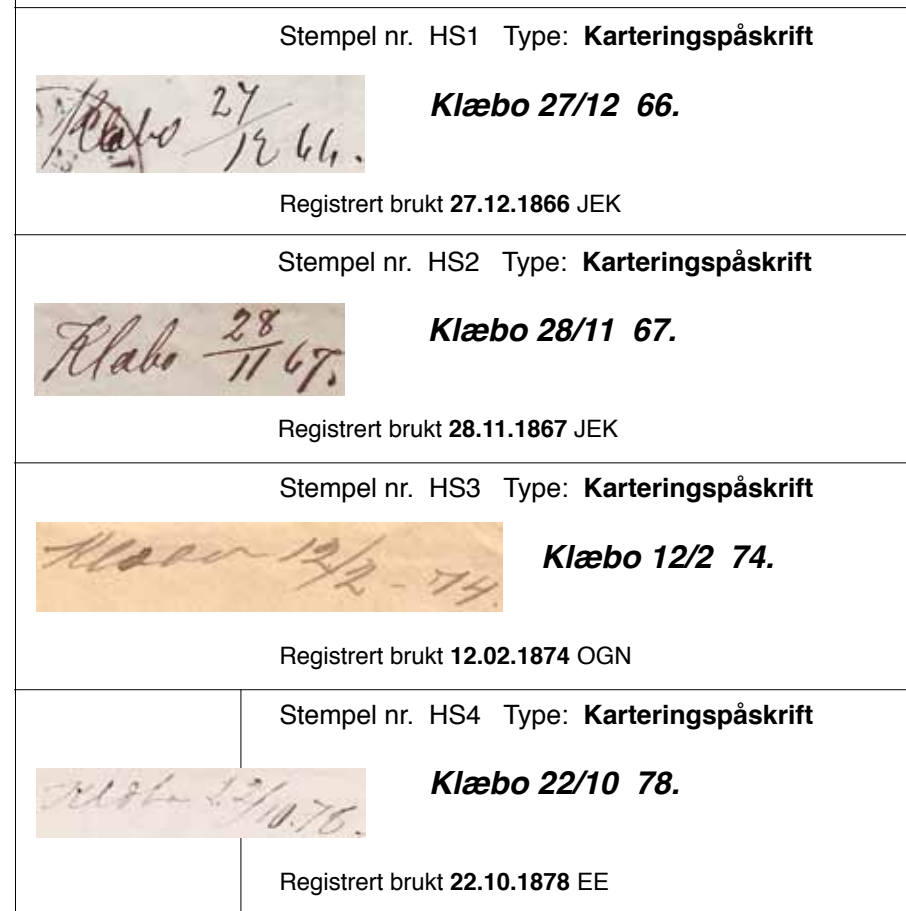 Stempel nr. HS1 Type: Karteringspåskrift
Klæbo 27/12 66.
Klæbo 27/12 66.
Registrert brukt 27.12.1866 JEK
Stempel nr. HS2 Type: Karteringspåskrift
Klæbo 28/11 67.
Klæbo 28/11 67.
Registrert brukt 28.11.1867 JEK
Stempel nr. HS3 Type: Karteringspåskrift
Klæbo 12/2 - 74.
Klæbo 12/2 74.
Registrert brukt 12.02.1874 OGN
Stempel nr. HS4 Type: Karteringspåskrift
Klæbo 22/10. 78.
Klæbo 22/10 78.
Registrert brukt 22.10.1878 EE